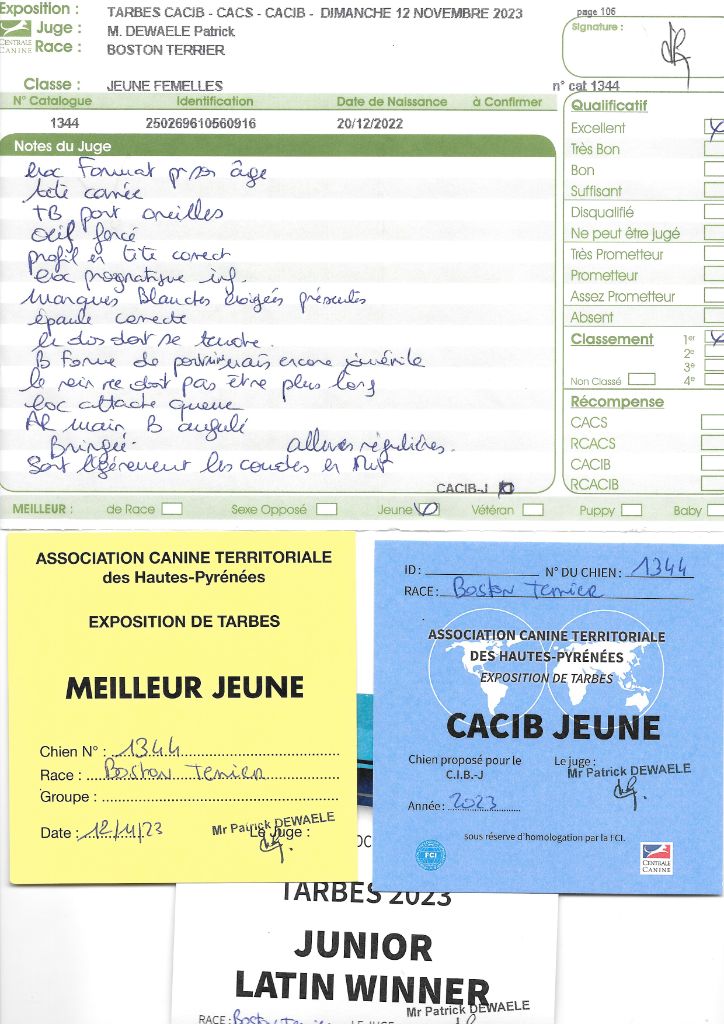 Exposition : TARBES CACIB - CACS - CACIB - DIMANCHE 12 NOVEMBRE 2023
page 106
Juge : M. DEWAELE Patrick
Signature :
CENTRALE CANINE
Race : BOSTON TERRIER
Classe : JEUNE FEMELLES
n° cat 1344
N° Catalogue Identification Date de Naissance à Confirmer
1344 250269610560916 20/12/2022
Notes du Juge
exc Format pr son âge
tête carrée
TB port oreilles
Oeil foncé
profil en tête correct
exc prognatique inf.
marques Blanches exigées présentes
épaule correcte
le dos doit se tendre.
B forme de poitrine mais encore juvénile
le rein ne doit pas être plus long
exc attache queue
AR main B angulé
Bringée. allures régulières.
Sort légèrement les coudes en
CACIB-J
Qualificatif
Excellent
Très Bon
Bon
Suffisant
Disqualifié
Ne peut être jugé
Très Prometteur
Prometteur
Assez Prometteur
Absent
Classement 1er
2e
3e
Non Classé 4e
Récompense
CACS
RCACS
CACIB
RCACIB
MEILLEUR : de Race Sexe Opposé Jeune Vétéran Puppy Baby
ASSOCIATION CANINE TERRITORIALE
des Hautes-Pyrénées
EXPOSITION DE TARBES
MEILLEUR JEUNE
Chien N° : 1344
Race : Boston Terrier
Groupe :
Date : 12/11/23 Le Juge :
Mr Patrick DEWAELE
ID : N° DU CHIEN : 1344
RACE : Boston Terrier
ASSOCIATION CANINE TERRITORIALE
DES HAUTES-PYRÉNÉES
EXPOSITION DE TARBES
CACIB JEUNE
Chien proposé pour le
C.I.B.-J
Le juge :
Mr Patrick DEWAELE
Année : 2023
sous réserve d'homologation par la FCI.
FCI
CENTRALE
CANINE
TARBES 2023
JUNIOR
LATIN WINNER
Mr Patrick DEWAELE
RACE : Boston Terrier LE JUGE